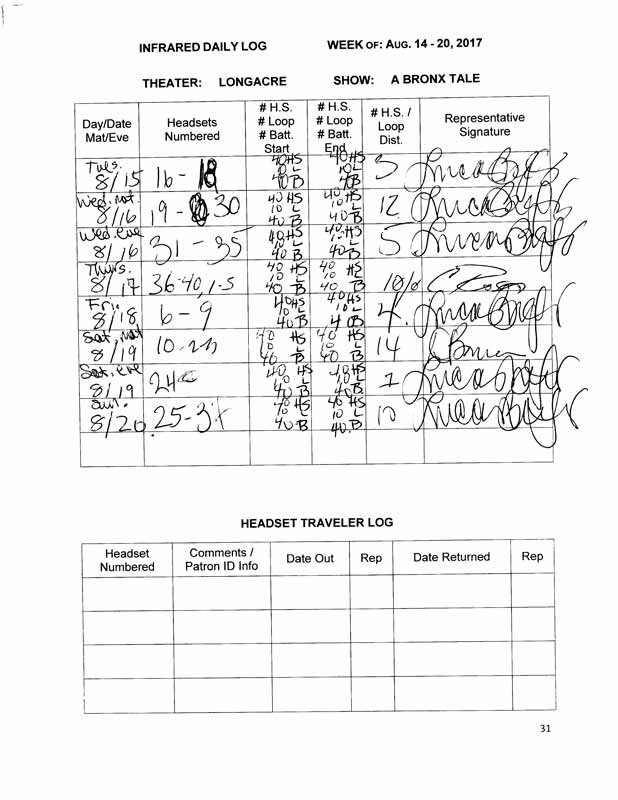 INFRARED DAILY LOG WEEK OF: AUG. 14 - 20, 2017
THEATER: LONGACRE SHOW: A BRONX TALE
Day/Date Mat/Eve Headsets Numbered # H.S. # Loop # Batt. Start # H.S. # Loop # Batt. End # H.S. / Loop Dist. Representative Signature
Tues. 8/15 16 - 18 40HS 10L 40B 40HS 10L 40B 3
Wed. mat. 8/16 19 - 30 40 HS 10 L 40 B 40 HS 10 L 40 B 12
Wed. eve 8/16 31 - 35 40HS 10L 40 B 40HS 10L 40B 5
Thurs. 8/17 36-40, 1-5 40 HS 10 L 40 B 40 HS 10 L 40 B 10/0
Fri. 8/18 6 - 9 40HS 10L 40B 40HS 10L 40B 4.
Sat, mat 8/19 10- 40 HS 10 L 40 B 40 HS 10 L 40 B 14
Sat. eve 8/19 24 40 HS 10 L 40 B 40HS 10L 40B 1
8/20 25-3 40 HS 10 L 40 B 40 HS 10 L 40 B 10
HEADSET TRAVELER LOG
Headset Numbered Comments / Patron ID Info Date Out Rep Date Returned Rep
31